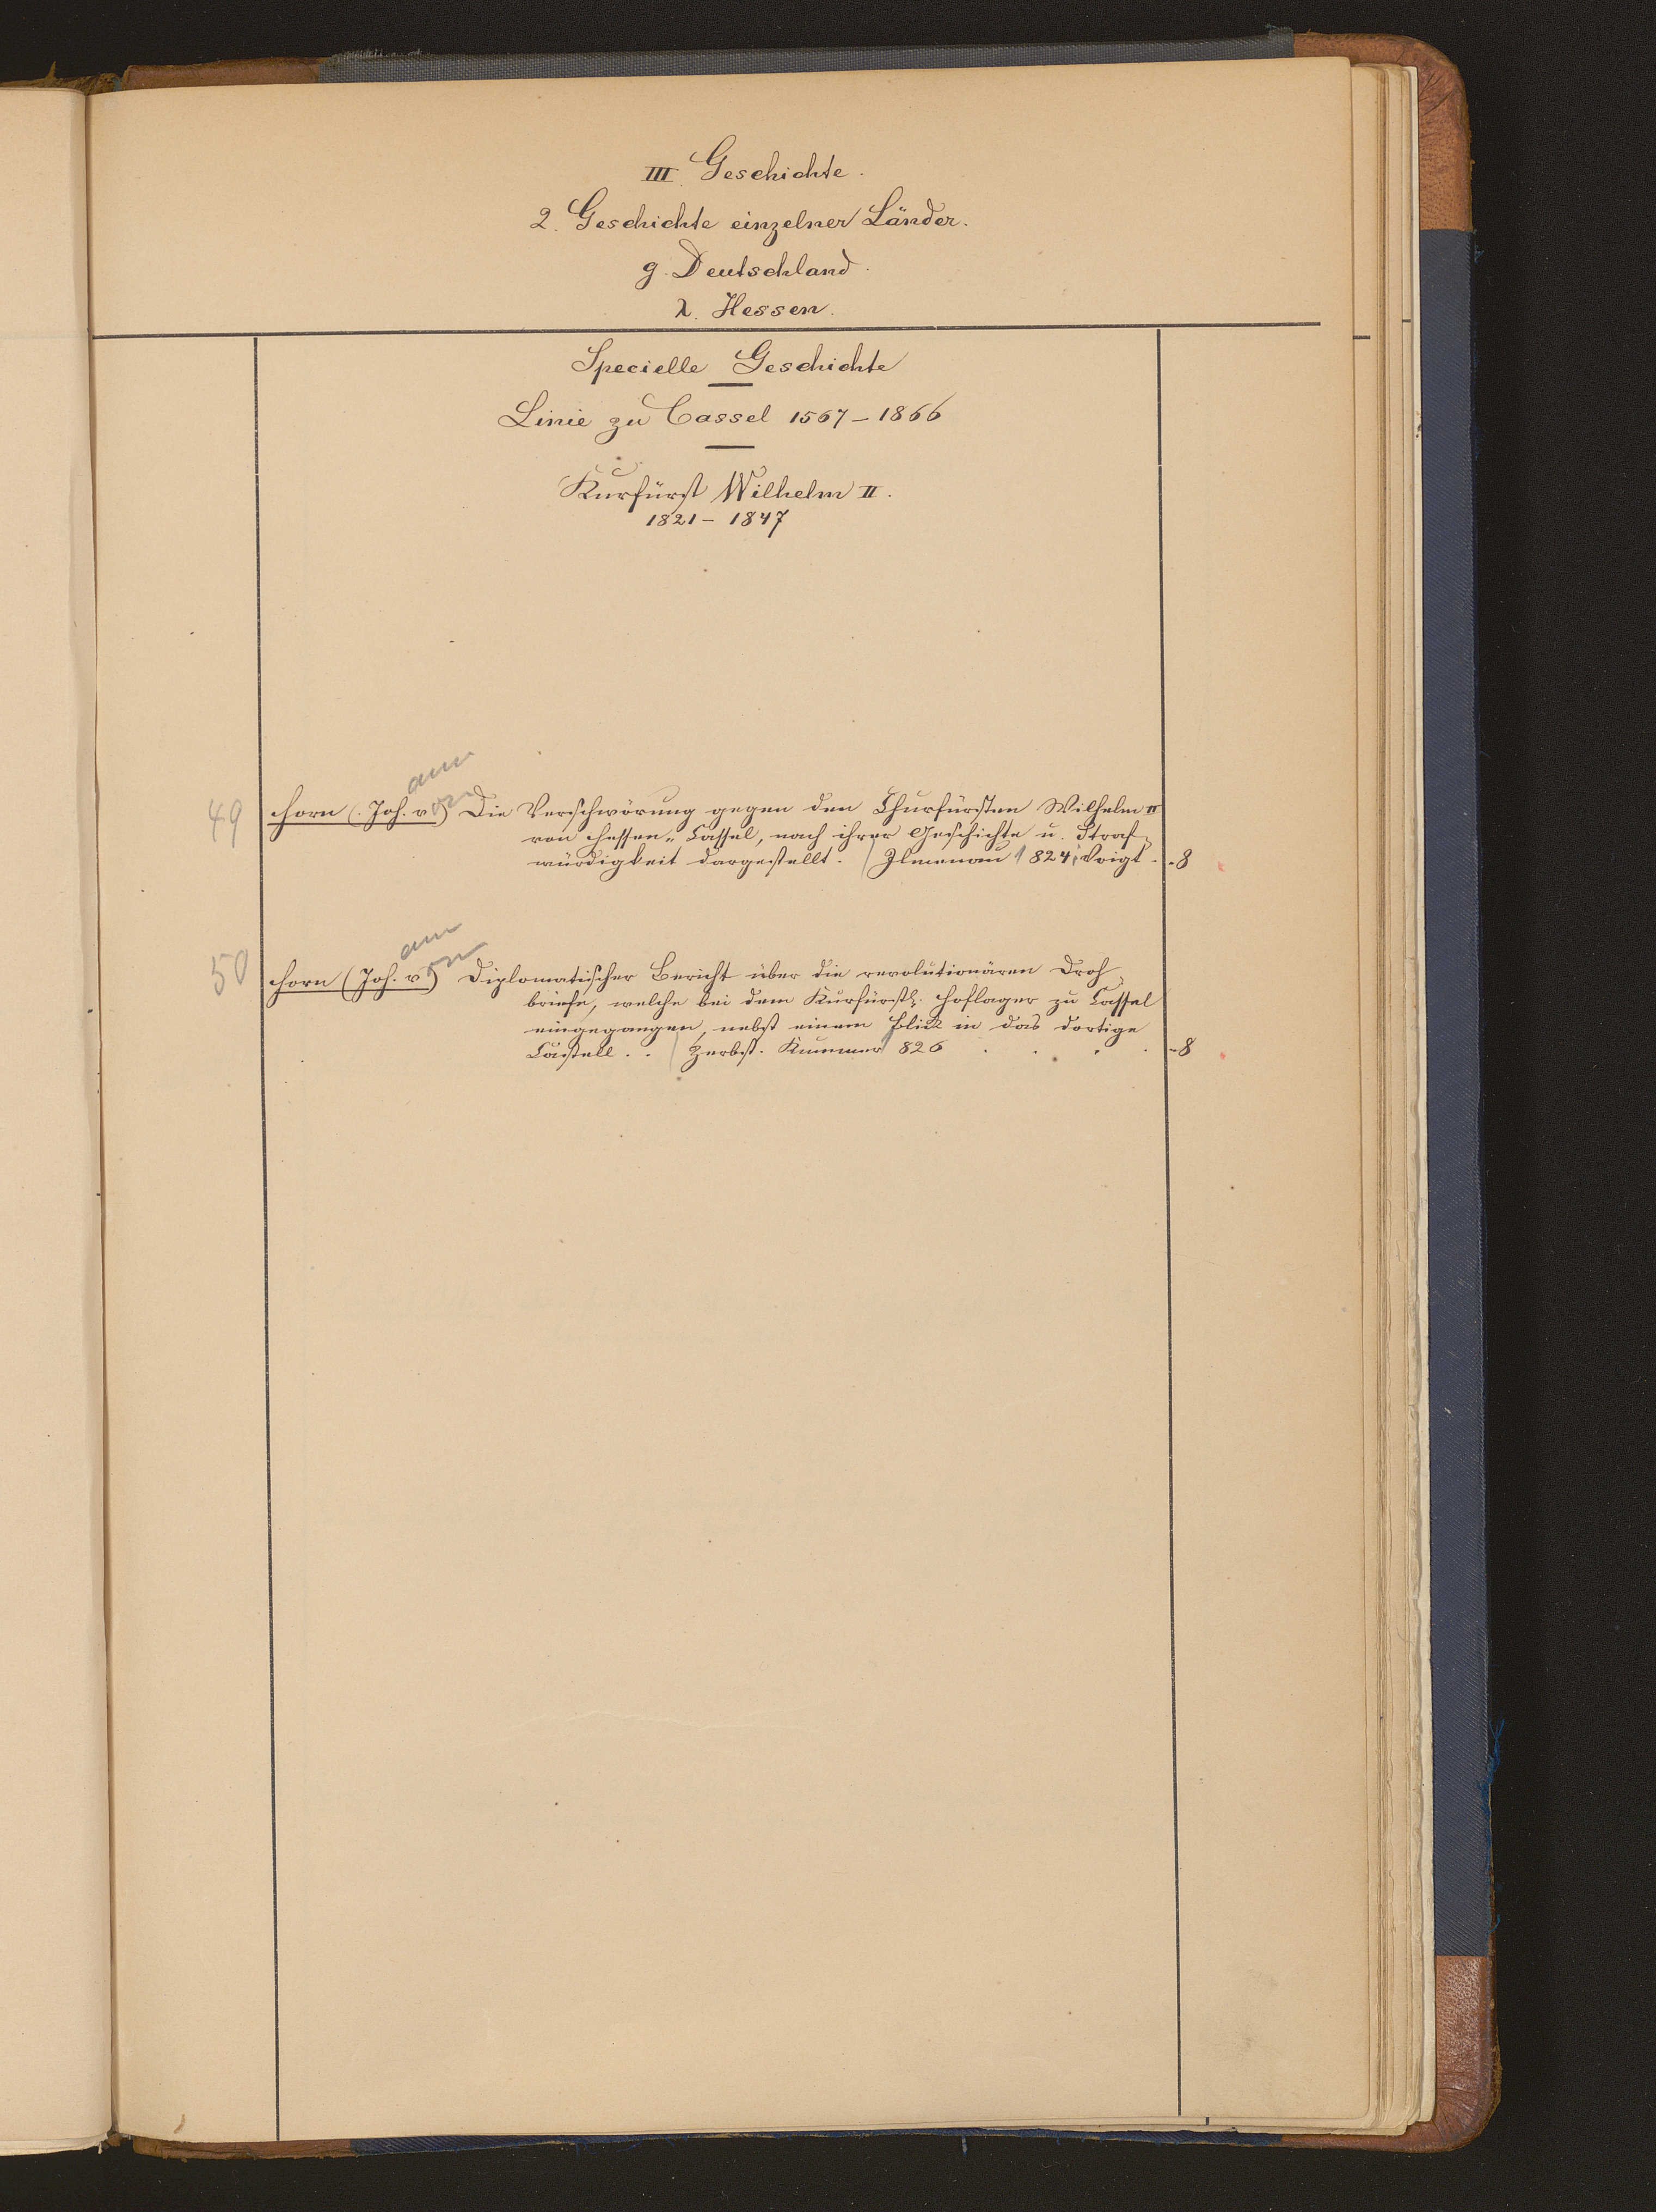 III. Geschichte.
2. Geschichte einzelner Länder.
g. Deutschland.
λ. Hessen.
Specielle Geschichte
Linie zu Cassel 1567-1866
Kurfürst Wilhelm II.
1821-1847
ann
on
49 Horn (Joh. v.) Die Verschwörung gegen den Churfürsten Wilhelm II
von Hessen-Cassel, nach ihrer Geschichte u. Straf-
würdigkeit dargestellt. / Ilmenau 1824, Voigt. -8
ann
on
50 Horn (Joh. v.) Diplomatischer Bericht über die revolutionären Droh-
briefe, welche bei dem Kurfürstl. Hoflager zu Cassel
eingegangen, nebst einem Blick in das dortige
Castell. . / Zerbst. Kummer 1826 . . . . -8